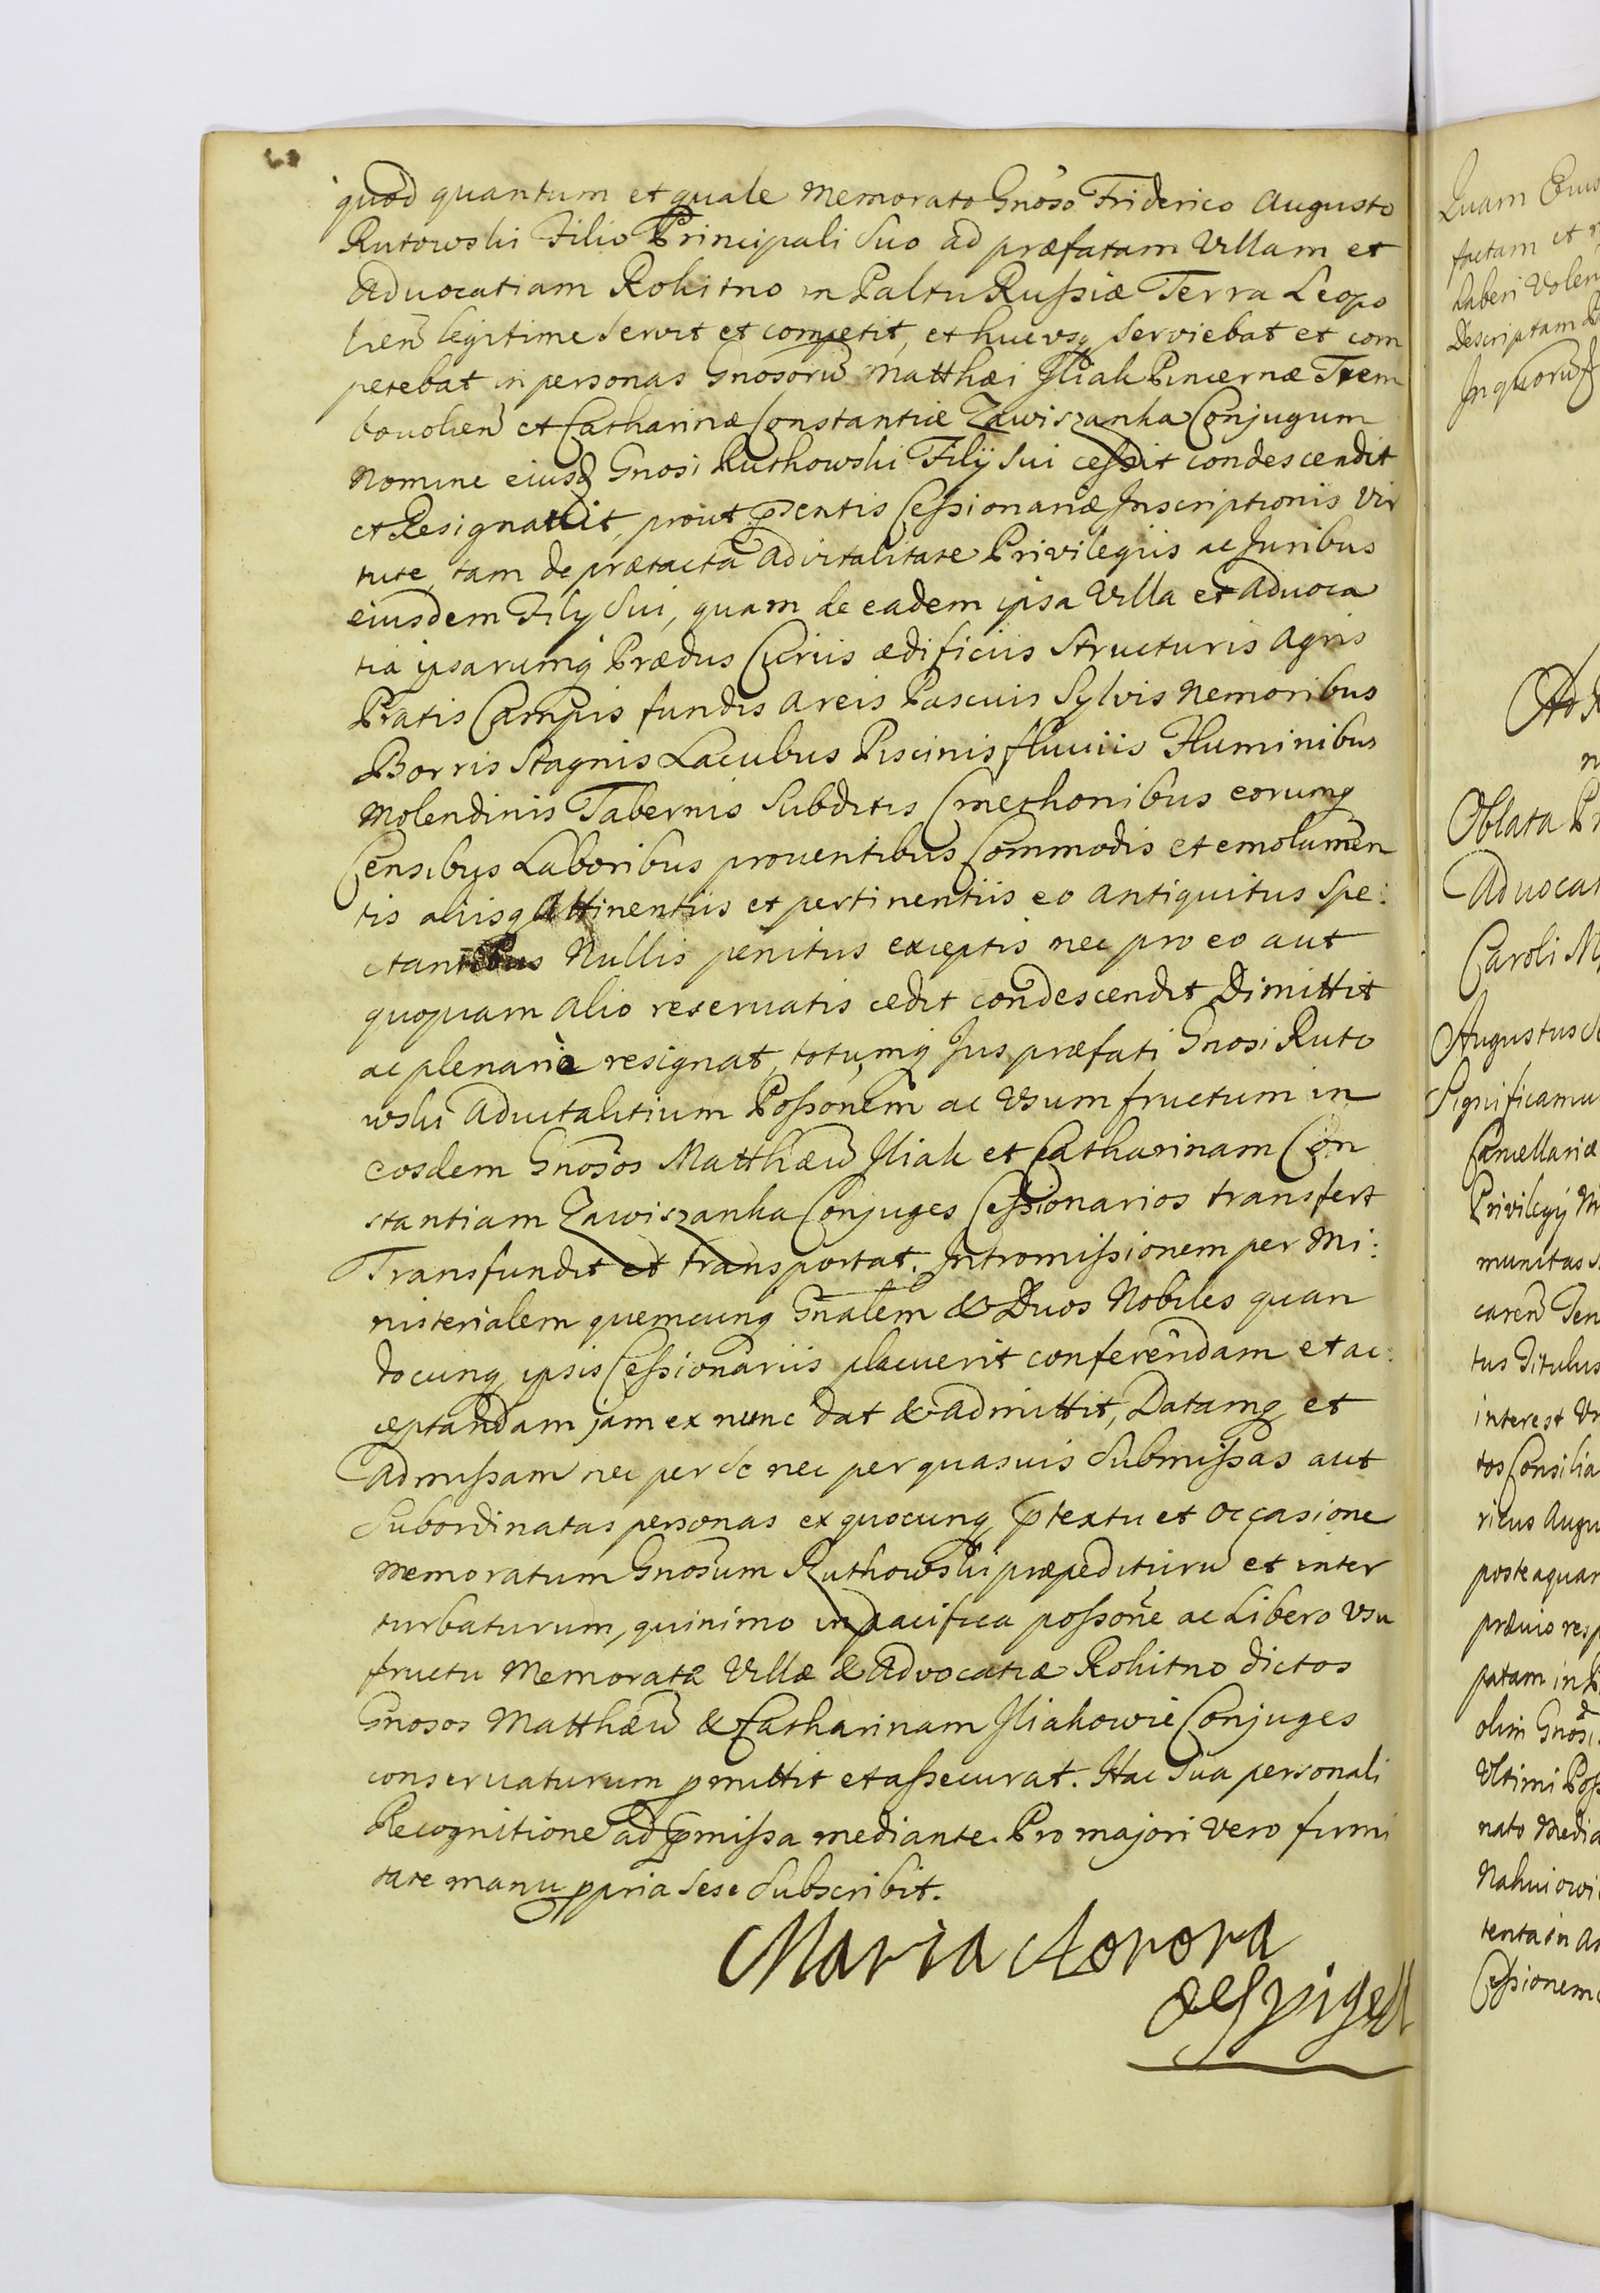 quod quantum et quale Memorato Gnoso Friderico Augusto
Rutowski Filio Principali Suo ad præfatam Villam et
Advocatiam Rokitno in Paltu Russiæ Terra Leopo
lien̄ legitime Servit et competit, et hucusq Serviebat et com
petebat in personas Gnosorū Matthæi Jliak Pincernæ Trem
bovolien̄ et Catharinæ Constantiæ Zawiszanka Conjugum
Nomine eiusd Gnosi Ruthowski Filÿ Sui cessit condescendit
et Resignavit, prout pn̄tis Cessionariæ Inscriptionis Vir
tute, tam de prætacta Advitalitate Privilegiis ac Juribus
eiusdem Filÿ Sui, quam de eadem ipsa Villa et Advoca
tia ipsarumq Prædiis Curiis ædificiis Structuris Agris
Pratis Campis fundis Areis Pascuis Sylvis Nemoribus
Borris Stagnis Lacubus Piscinis fluviis Fluminibus
Molendinis Tabernis Subditis Cmethonibus eorumq
Censibus Laboribus proventibus Commodis et emolumen
tis aliisq Attinentiis et pertinentiis eo antiquitus Spe:
ctantibus Nullis penitus exceptis nec pro eo aut
quoquam Alio reservatis cedit condescendit Dimittit
ac plenariè resignat, totumq Jus præfati Gnosi Ruto
wski Advitalitium Possonem ac Usum fructum in
eosdem Gnosos Matthæū Jliak et Catharinam Con
stantiam Zawiszanka Conjuges Cessionarios transfert
Transfundit et transportat. Intromissionem per Mi:
nisterialem quemcunq Gnalem & Duos Nobiles quan
docunq ipsis Cessionariis placuerit conferendam et ac:
ceptandam jam ex nunc dat & Admittit, Datamq et
Admissam nec per Se nec per quasvis Submissas aut
Subordinatas personas ex quocunq ptextu et occasione
Memoratum Gnosum Ruthowski præpediturū et inter
turbaturum, quinimo in pacifica possone ac Libero Usu
fructu Memoratæ Villæ & Advocatiæ Rokitno dictos
Gnosos Matthæū & Catharinam Jliakowie Conjuges
conservaturum pmittit et assecurat. Hac Sua personali
Recognitione ad pmissa mediante. Pro majori vero firmi
tate manu ppria Sese Subscribit.
Maria Aorora
de Spigell
Quam
factam et
haberi Volen
Descriptam
In quorū
Oblata
Advocat
Caroli
Augustus
Significamu
Cancellariæ
Privilegÿ
munitas
caren̄ Ten
tus Titulus
interest
tos Consilia
ricus Augu
posteaquam
prævio resp
patam in
olim Gnosi
Ultimi Poss
nato Media
tenta in
Cessionem